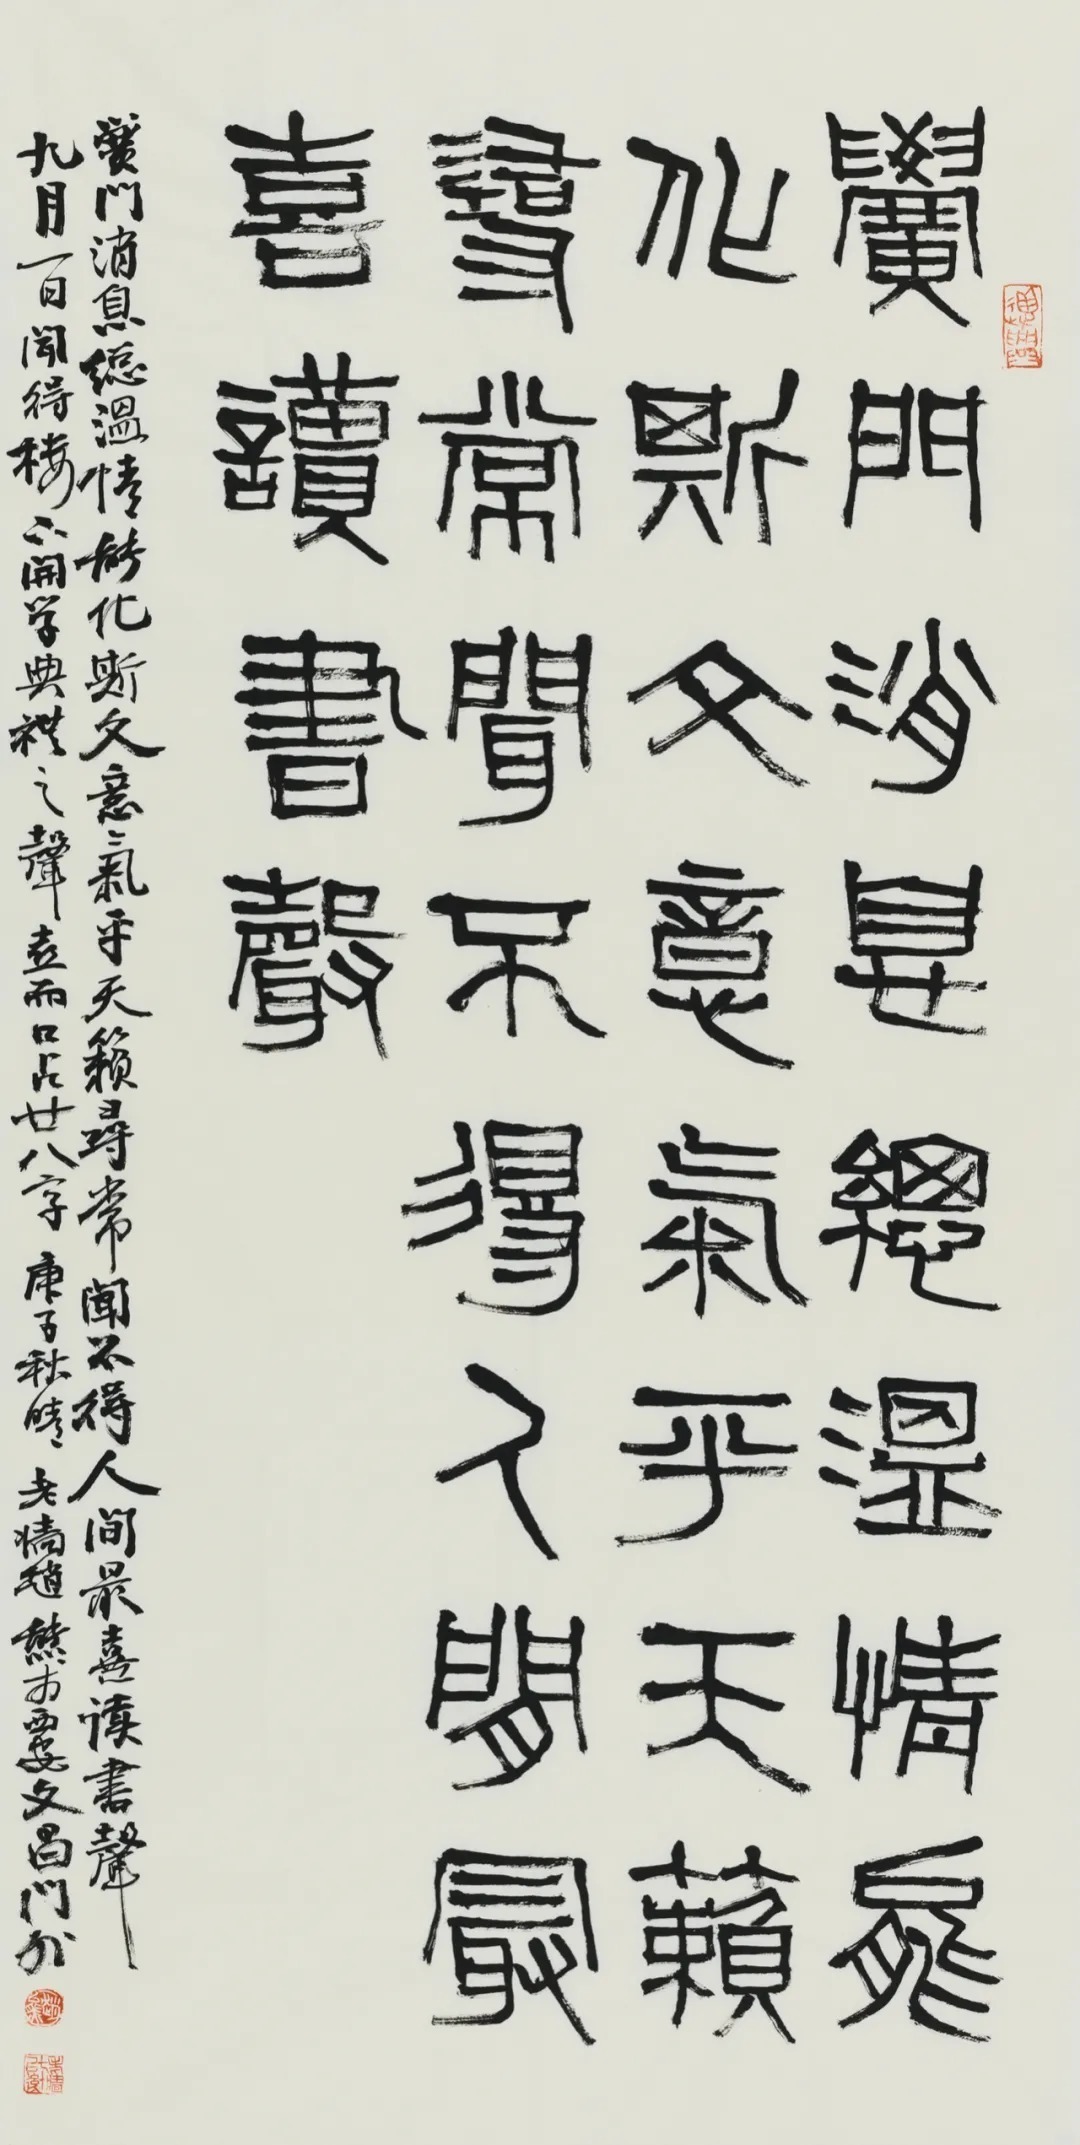 黌門消息總溫情能
化斯文意氣平天籟
尋常聞不得人間最
喜讀書聲
黌門消息總溫情能化斯文意氣平天籟尋常聞不得人间最喜读書聲
九月一日聞得樓下開学典禮之聲 喜而口占廿八字 庚子秋晴 老墻趙熊于西安文昌門外